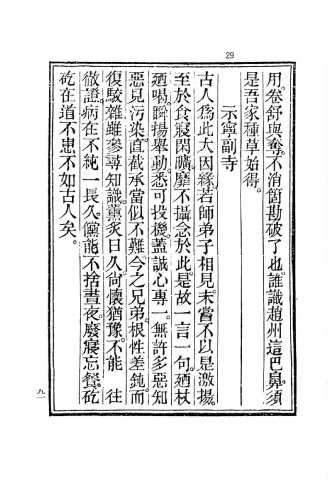 29
用。卷舒與奪。不消箇勘破了也。誰識趙州這巴鼻。須
是吾家種草始得。
示寧副寺
古人爲此大因緣。若師弟子相見。未嘗不以是激揚。
至於食寢閑曠。靡不攝念於此。是故一言一句。廼杖
廼喝。瞬揚擧動。悉可投機。蓋誠心專一。無許多惡知
惡見污染。直截承當。似不難。今之兄弟。根性差鈍。而
復駁雜。雖參尋知識。薰炙日久。尙懷猶豫。不能 往
徹證。病在不純一長久。儻能不捨晝夜。廢寢忘餐。矻
矻在道。不患不如古人矣。
九一